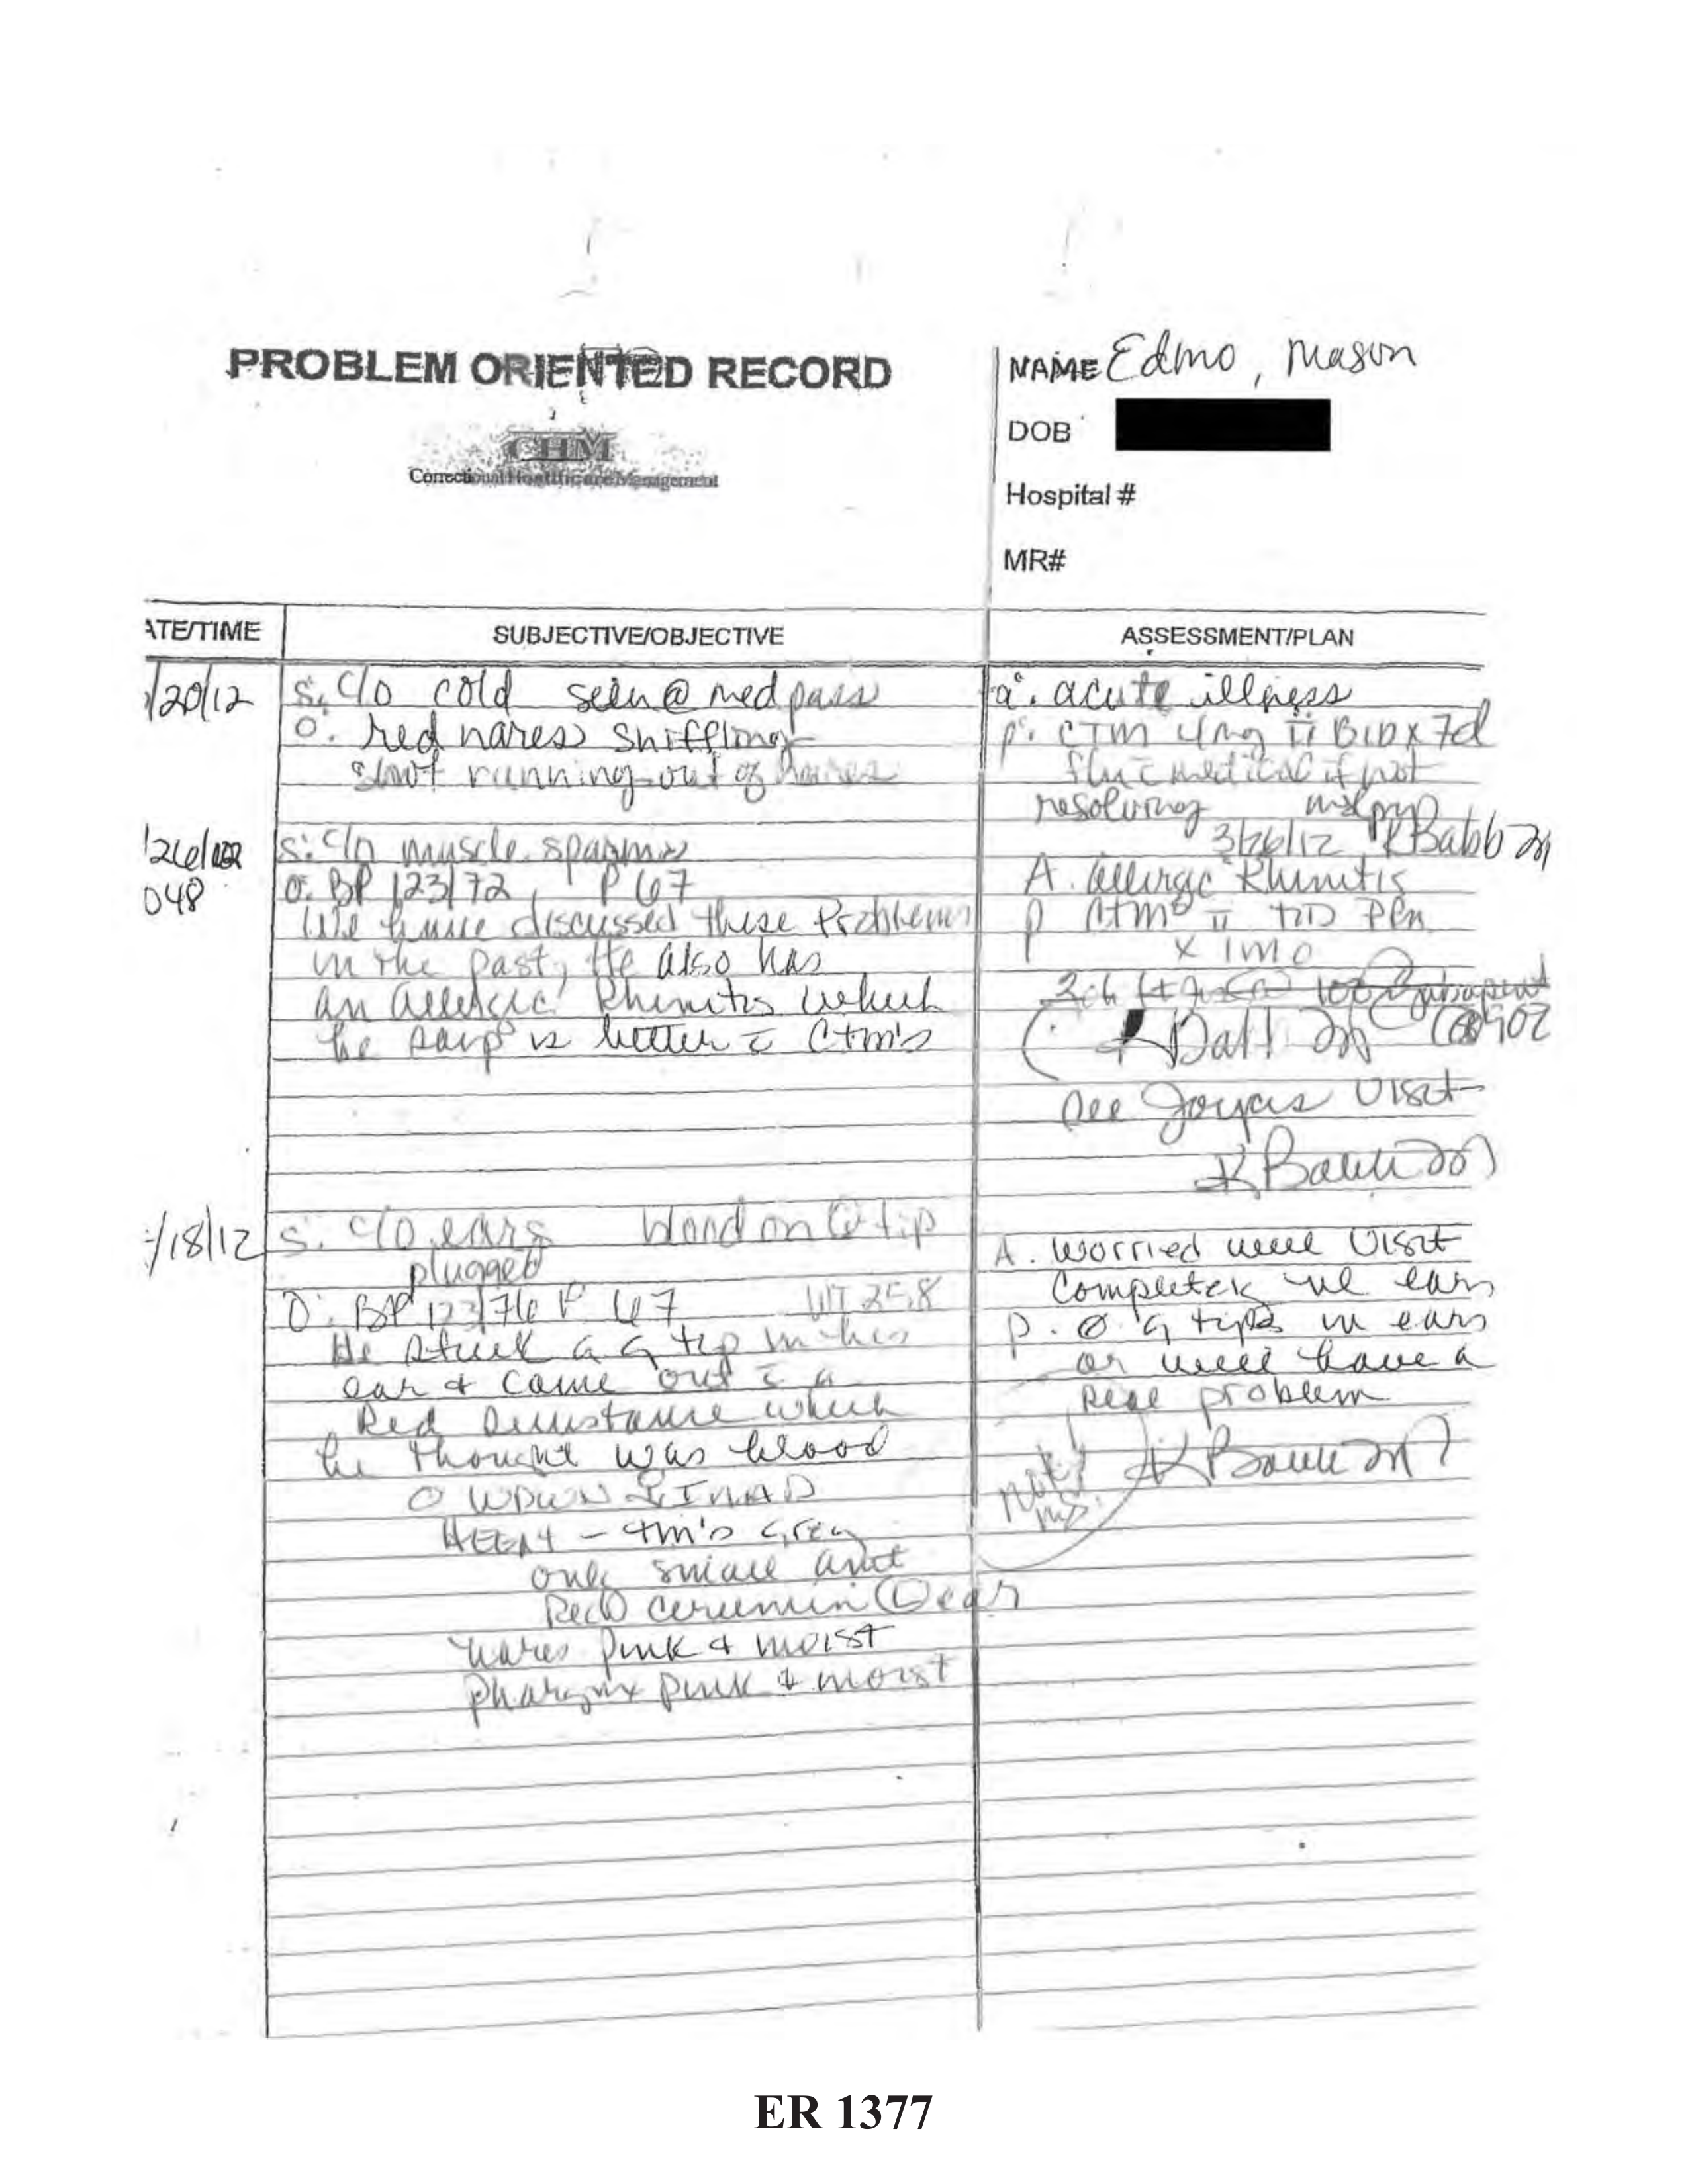 PROBLEM ORIENTED RECORD
CHM
Correctional Healthcare Management
NAME Edmo, Mason
DOB
Hospital #
MR#
ATE/TIME
SUBJECTIVE/OBJECTIVE
ASSESSMENT/PLAN
/20/12
S. C/O cold seen @ med pass
O: red nares sniffling
snot running out of nares
a: acute illness
p: CTM 4mg ii BID x 7d
f/u c medical if not
resolving
3/26/12 KBabb
/26/12
048
S: C/o muscle spasms
O. BP 123/72, P 67
We have discussed these Problems
in the past, He also has
an allergic Rhinitis which
he says is better c Ctm's
A. allergic Rhinitis
P Ctm ii TID PRN
x 1 mo
0902
see Joyces Visit
/18/12
S: C/O ears blood on Q tip
plugged
O: BP 123/76 P 67 WT 258
He stuck a q tip in his
ear & came out c a
Red substance which
he thought was blood
O WDWN IN NAD
HEENT - tm's grey
only small amt
Red cerumin L ear
nares pink & moist
pharynx pink & moist
A. worried well Visit
Completely nl ears
P. Ø q tips in ears
or will have a
real problem
ER 1377